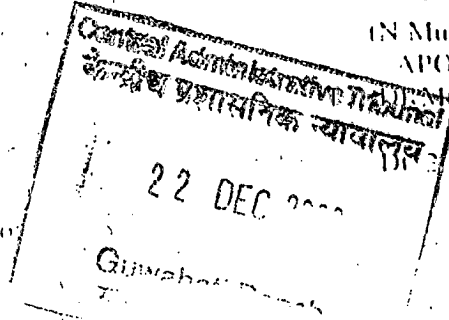 IN Mu
APO
Central Administrative Tribunal
केन्द्रीय प्रशासनिक न्यायालय
22 DEC
Guwahati Bench